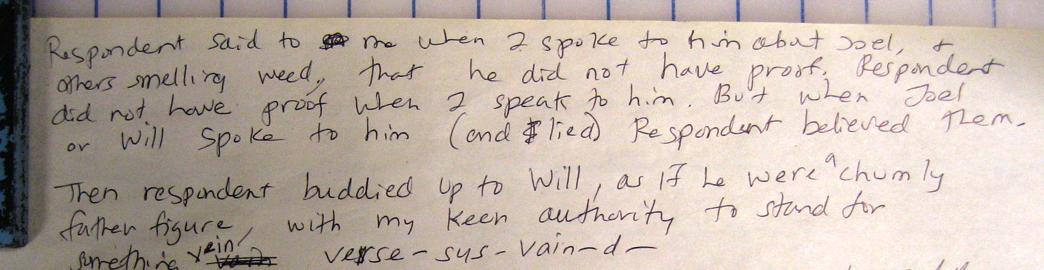 Respondent said to me when I spoke to him about Joel, +
others smelling weed, that he did not have proof. Respondent
did not have proof when I speak to him. But when Joel
or Will spoke to him (and lied) Respondent believed them.
Then respondent buddied up to Will, as if he were a chumly
father figure, with my keen authority to stand for
something vein/ verse-sys-vain-d-